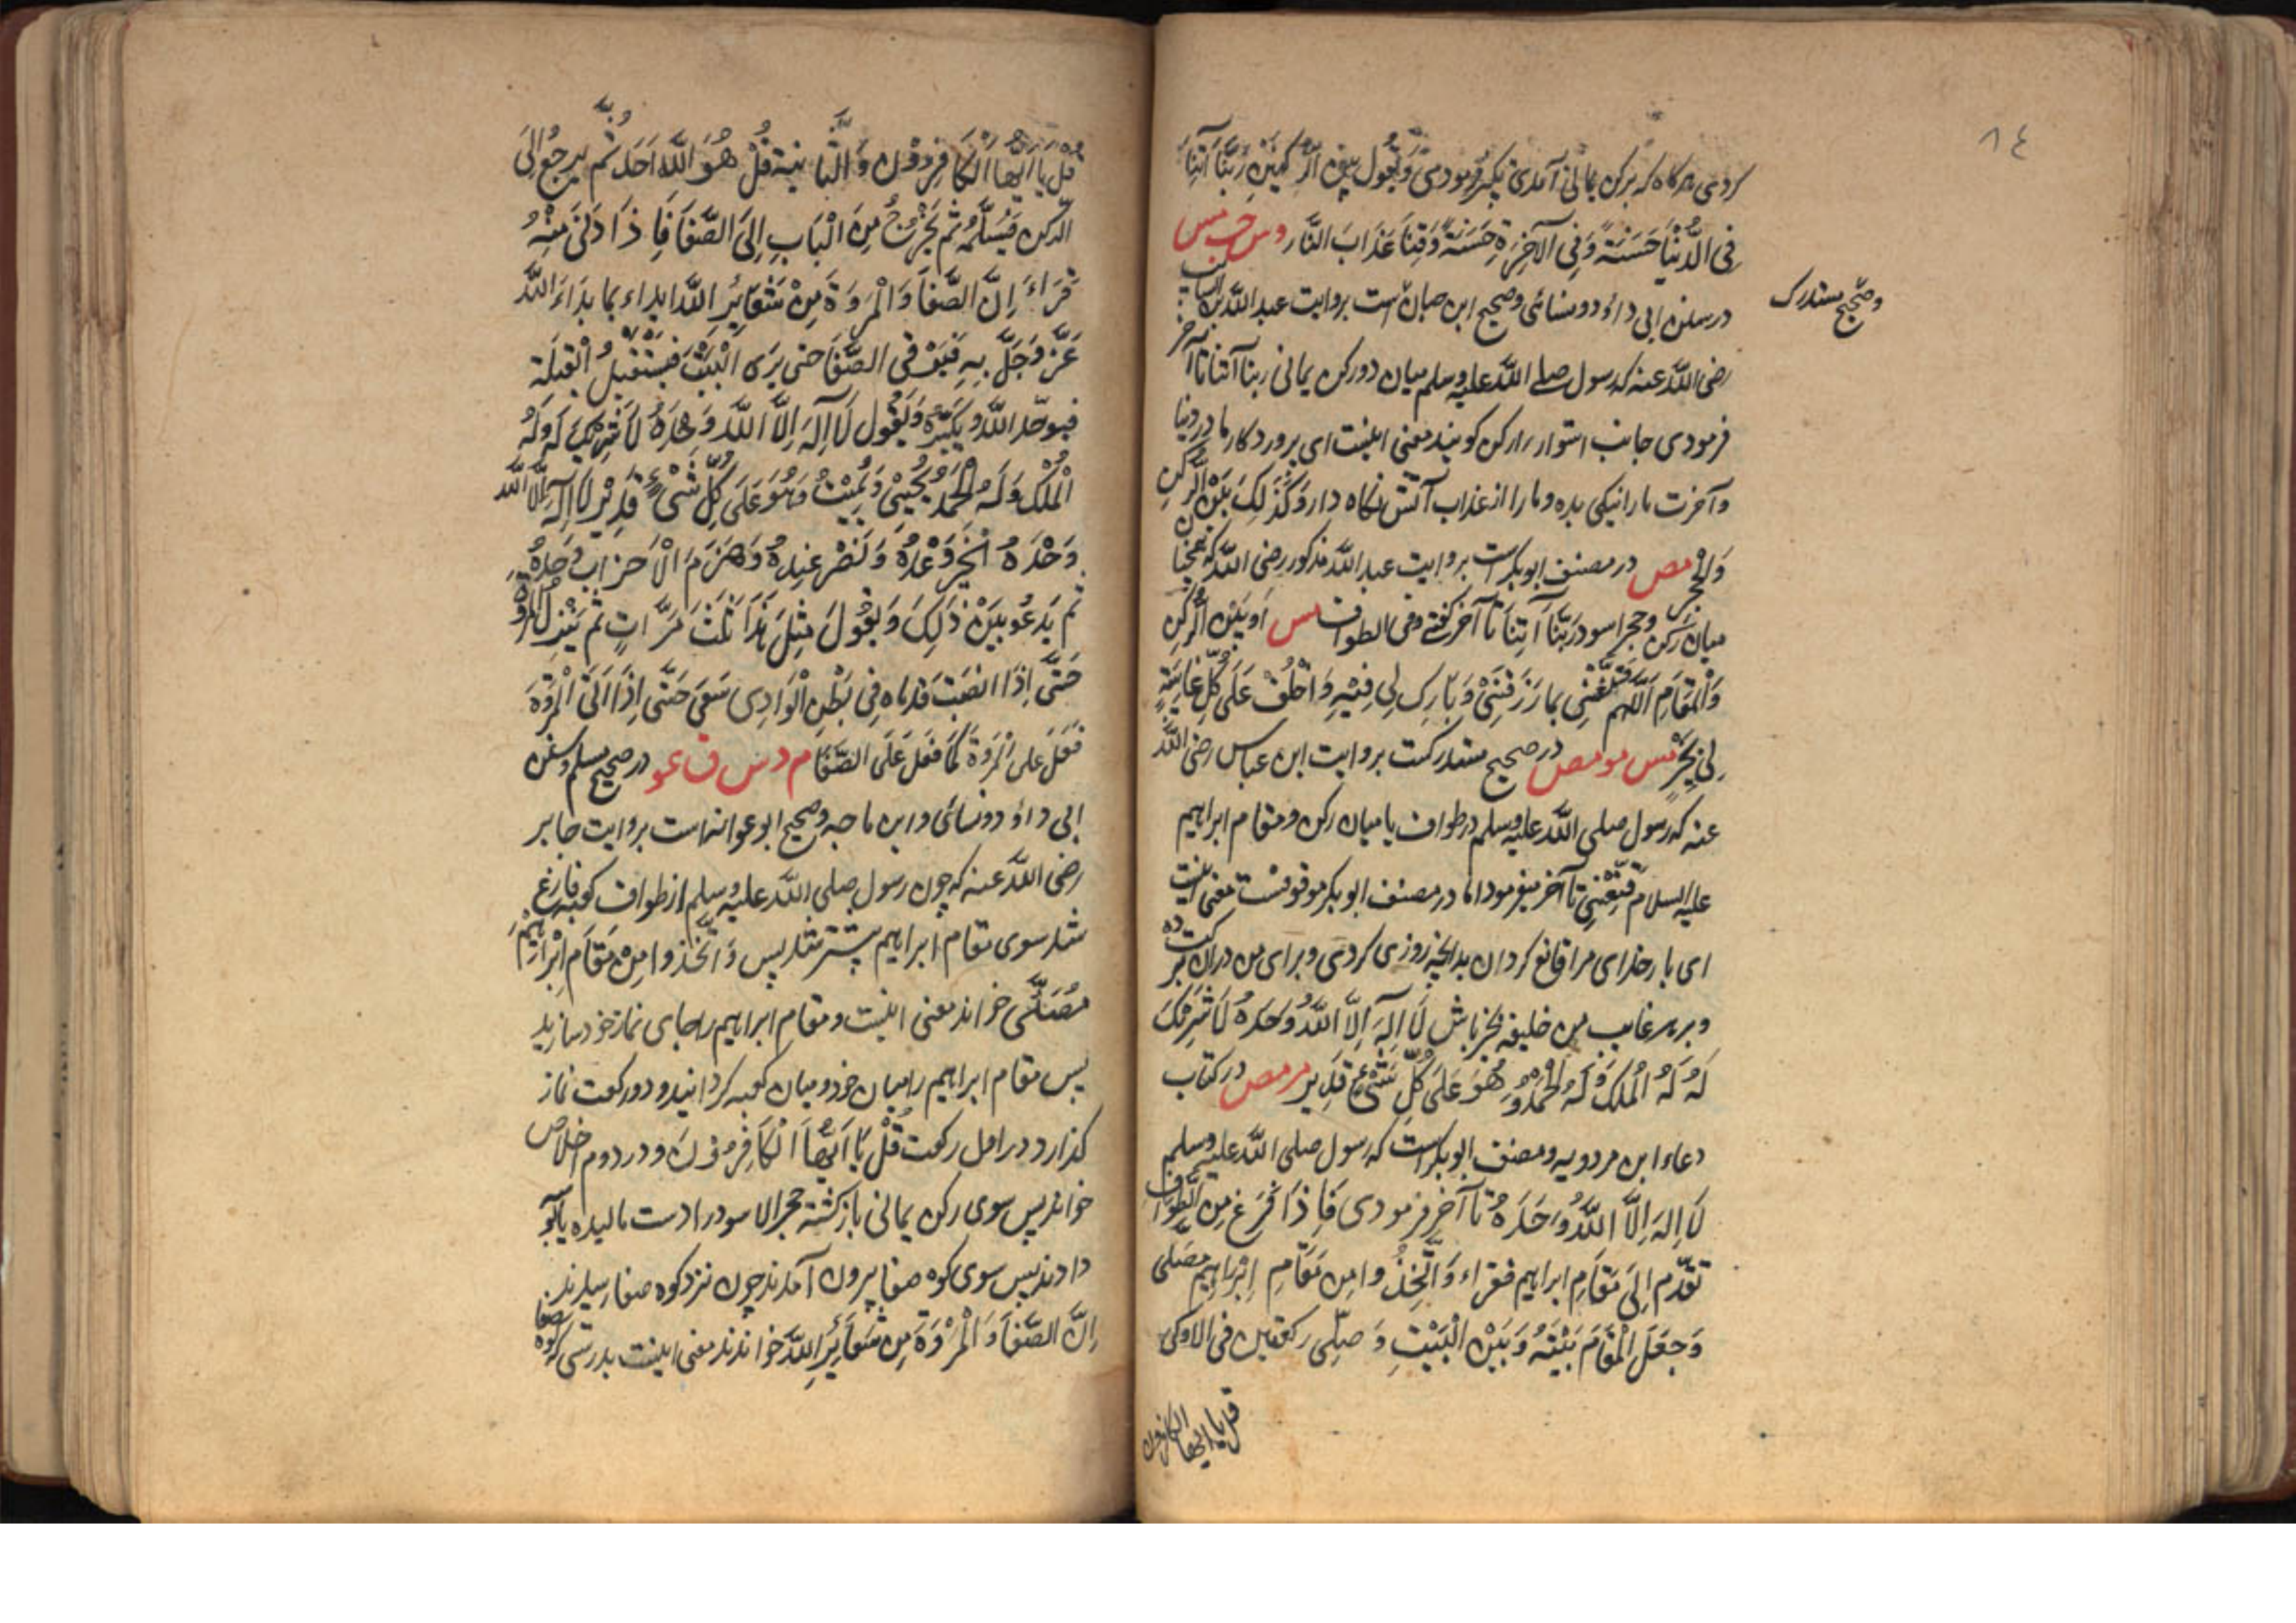 ٨٤
کردی هرکاه که برکن یمانی آمدی تکبیر فرمودی وَیَقُول بین الرُّکْنَیْنِ رَبَّنَا آتِنَا
فِی الدُّنْیَا حَسَنَةً وَفِی الآخِرَةِ حَسَنَةً وَقِنَا عَذَابَ النَّار د س حب مس
در سنن ابی داؤد و نسائی و صحیح ابن حبان است بروایت عبد الله بن السایب
وصحیح مستدرک
رضی الله عنه که رسول صلے الله علیه وسلم میان دو رکن یمانی ربنا آتنا تا آخر
فرمودی جانب استوار را رکن کویند معنی اینست ای پروردکار ما در دنیا
و آخرت ما را نیکی بده و ما را از عذاب آتش نکاه دار وَکَذَلِکَ بَیْنَ الرُّکْنِ
وَالْحَجَرِ مص در مصنف ابوبکر است بروایت عبد الله مذکور رضی الله که همچنان
میان رکن و حجر اسود رَبَّنَا آتِنَا تا آخر کفتے و فی الطواف مس اَو بَیْنَ الرُّکْنِ
وَالْمَقَامِ اَللّٰهُمَّ قَنِّعْنِی بِمَا رَزَقْتَنِیْ وَبَارِک لِی فِیْهِ وَاخْلُفْ عَلَی کُلِّ غَایِبَةٍ
لِی بِخَیْرٍ مس مو مص در صحیح مستدرکست بروایت ابن عباس رضی الله
عنه که رسول صلی الله علیه وسلم در طواف یا میان رکن و مقام ابراهیم
علیه السلام قَنِّعْنِی تا آخر میفرمود اما در مصنف ابوبکر موقوفست معنی اینست
ای بار خدای مرا قانع کردان بدانچه روزی کردی و برای من در ان برکت ده
و بر هر غایب من خلیفه بخیر باش لَا اِلٰهَ اِلَّا اللهُ وَحْدَهُ لَا شَرِیْکَ
لَهُ لَهُ الْمُلْکُ وَلَهُ الْحَمْدُ وَ هُوَ عَلَی کُلِّ شَیْءٍ قَدِیر مر مص در کتاب
دعاء ابن مردویه و مصنف ابوبکر است که رسول صلی الله علیه وسلم
لَا اِلٰهَ اِلَّا اللهُ وَحْدَهُ تا آخر فرمودی فَاِذَا فَرَغَ مِنَ الطَّوَافِ
تَقَدَّمَ اِلَی مَقَامِ ابراهیم فقراء وَاتَّخِذُوا مِن مَقَامِ اِبْرَاهِیمَ مُصَلّی
وَجَعَلَ الْمَقَامَ بَیْنَهُ وَبَیْنَ الْبَیْتِ وَ صَلّی رکعتین فی الاولی
قل یا ایها الکافرون
قُلْ یَا اَیُّهَا الْکَافِرُوْنَ وَ الثَّانِیَة قُلْ هُوَ اللهُ اَحَد ثُمَّ یَرْجِعُ اِلَی
الرکن فَیَسْتَلِمُهُ ثُمَّ یَخْرُجُ مِنَ الْبَابِ اِلَی الصَّفَا فَاِذَا دَنَی مِنْهُ
قَرَاءَ اِنَّ الصَّفَا وَالْمَرْوَةَ مِنْ شَعَایِرِ اللهِ ابداء بما بَدَاءَ اللهُ
عَزَّ وَجَلَّ بِهِ فَیَرْقی الصَّفَا حتی یَرَی الْبَیْتَ فَیَسْتَقْبِلُ الْقِبْلَة
فیوحّد الله وَیُکَبِّرُهُ وَیَقُول لَا اِلٰهَ اِلَّا اللهُ وَحْدَهُ لَا شَرِیْکَ لَهُ لَهُ
الْمُلْکُ وَلَهُ الْحَمْدُ یُحْیِیْ وَیُمِیْتُ وَهُوَ عَلَی کُلِّ شَیْءٍ قَدِیْر لَا اِلٰهَ اِلَّا اللهُ
وَحْدَهُ اَنْجَزَ وَعْدَهُ وَنَصَرَ عَبْدَهُ وَهَزَمَ الْاَحْزَابَ وَحْدَهُ
ثُمَّ یَدْعُو بَیْنَ ذَلِکَ وَیَقُوْلُ مِثْلَ هٰذَا ثَلٰثَ مَرَّاتٍ ثُمَّ یَنْزِلُ الْمَرْوَة
حَتّٰی اِذَا انصَبَّتْ قَدَمَاه فِی بَطْنِ الْوَادِی سَعَی حَتّٰی اِذَا اَتَی الْمَرْوَةَ
فَعَلَ عَلَی الْمَرْوَة کَمَا فَعَلَ عَلَی الصَّفَا م د س ق عو در صحیح مسلم و سنن
ابی داؤد و نسائی و ابن ماجه و صحیح ابو عوانه است بروایت جابر
رضی الله عنه که چون رسول صلی الله علیه وسلم از طواف کعبه فارغ
شد سوی مقام ابراهیم پیشتر شد پس وَاتَّخِذُوا مِنْ مَقَامِ اِبْرَاهِیْمَ
مُصَلّی خواند معنی اینست و مقام ابراهیم را جای نماز خود سازید
پس مقام ابراهیم را میان خود و میان کعبه کردانید و دو رکعت نماز
کذارد در اول رکعت قُلْ یَا اَیُّهَا الْکَافِرُونَ و در دوم اخلاص
خواند پس سوی رکن یمانی باز کشته حجر الاسود را دست مالیده یا بوسه
دادند پس سوی کوه صفا بیرون آمدند چون نزد کوه صفا رسیدند
اِنَّ الصَّفَا وَالْمَرْوَةَ مِنْ شَعَائِرِ اللهِ خواندند معنی اینست بدرستی که کوه صفا